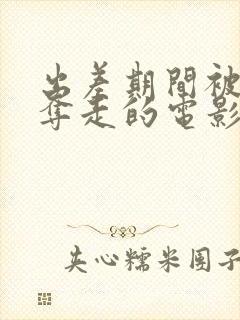 出差期間被
奪走的電影
夹心糯米团子